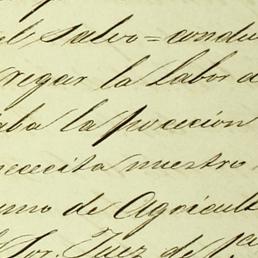 salvo=condu
regar la Labor d
aba la poseecion
necesita nuestro
smo de Agricult
Sor. Juez de